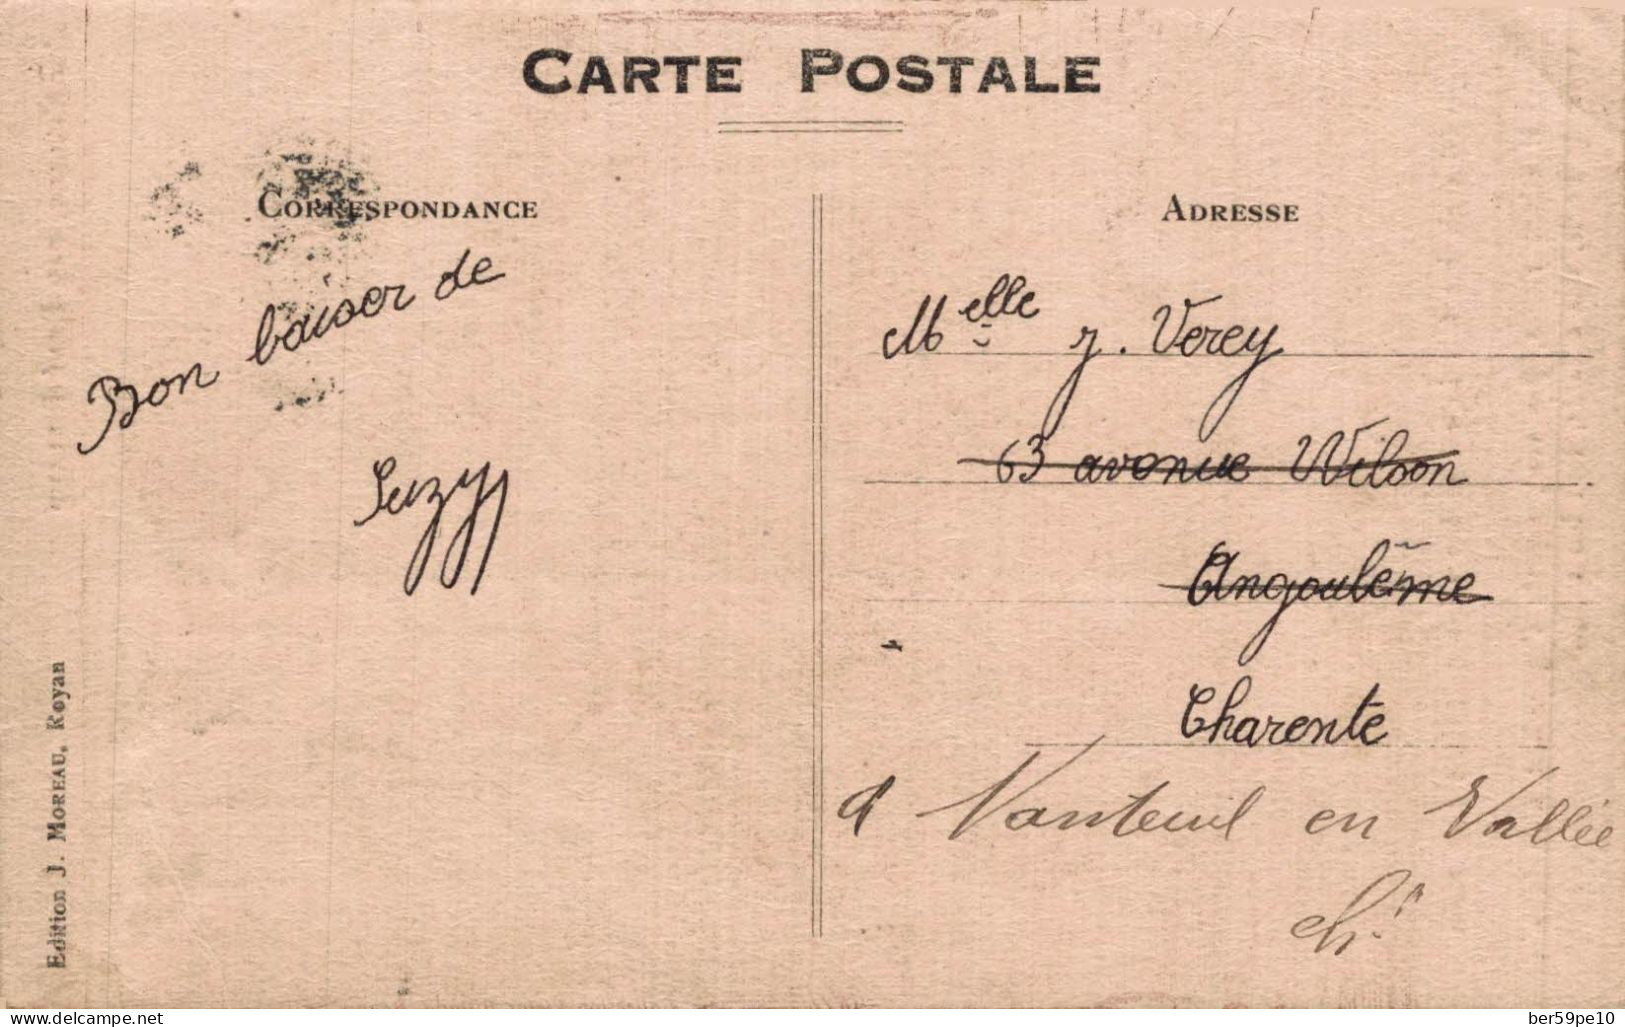 CARTE POSTALE
CORRESPONDANCE
Bon baiser de
Suzy
Edition J. MOREAU, Royan
ADRESSE
Melle J. Verey
63 avenue Wilson
Angoulême
Charente
à Nanteuil en Vallée
chte
delcampe.net
ber59pe10